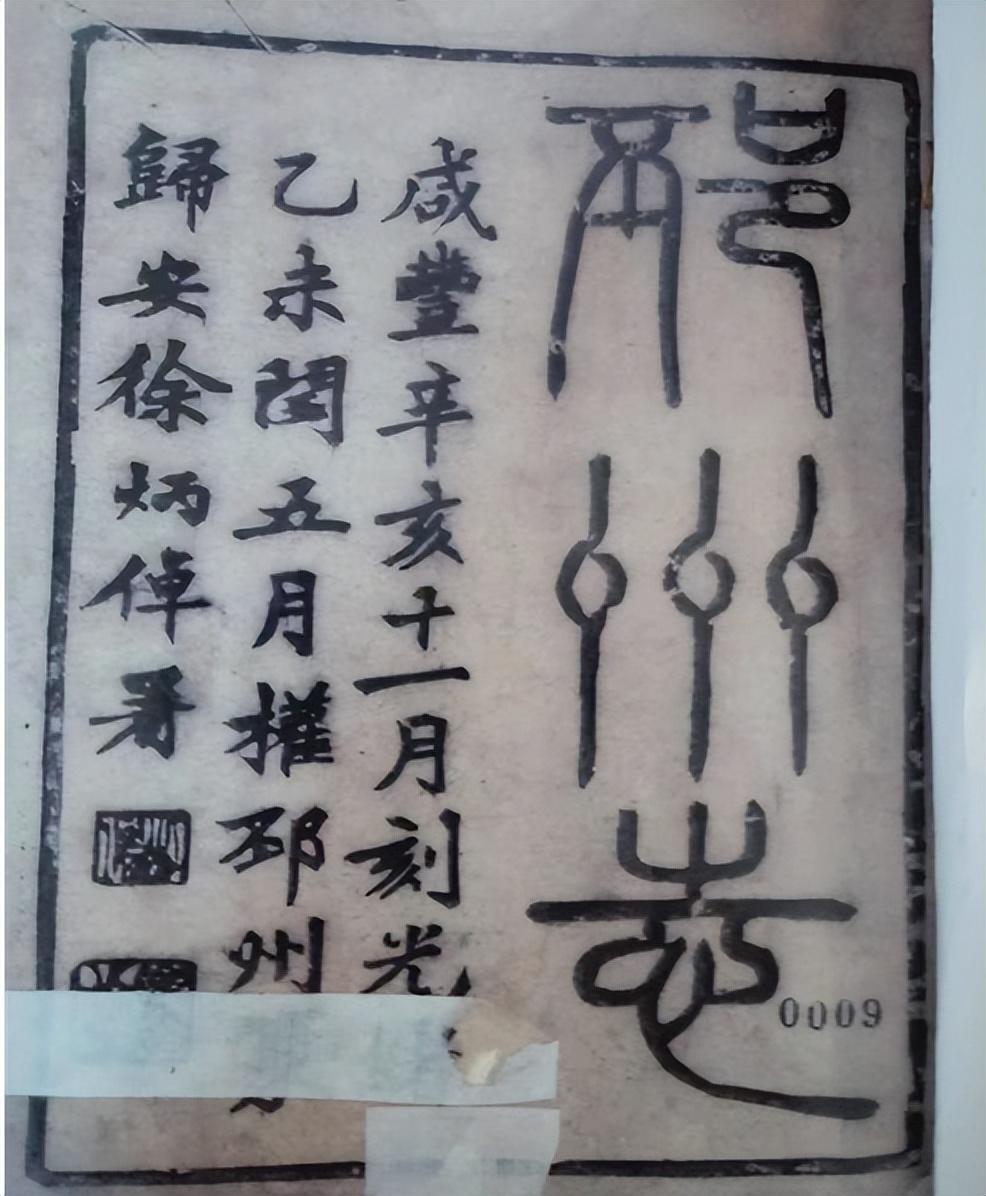 邳州志
咸豐辛亥十一月刻光
乙未閏五月權邳州
歸安徐炳倬署
0009